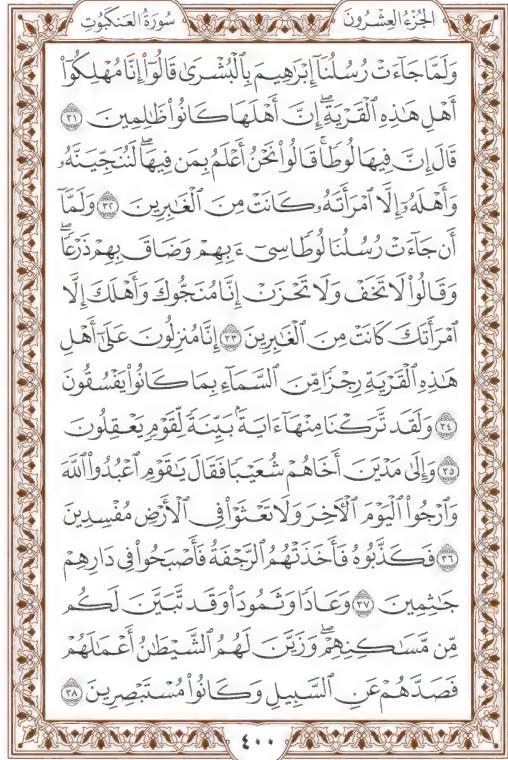 الجُزْءُ العِشْرُونَ سُورَةُ العَنكَبُوتِ
وَلَمَّا جَآءَتْ رُسُلُنَآ إِبْرَٰهِيمَ بِٱلْبُشْرَىٰ قَالُوٓا۟ إِنَّا مُهْلِكُوٓا۟
أَهْلِ هَٰذِهِ ٱلْقَرْيَةِ ۖ إِنَّ أَهْلَهَا كَانُوا۟ ظَٰلِمِينَ ٣١
قَالَ إِنَّ فِيهَا لُوطًا ۚ قَالُوا۟ نَحْنُ أَعْلَمُ بِمَن فِيهَا ۖ لَنُنَجِّيَنَّهُۥ
وَأَهْلَهُۥٓ إِلَّا ٱمْرَأَتَهُۥ كَانَتْ مِنَ ٱلْغَٰبِرِينَ ٣٢ وَلَمَّآ
أَن جَآءَتْ رُسُلُنَا لُوطًا سِىٓءَ بِهِمْ وَضَاقَ بِهِمْ ذَرْعًا ۖ
وَقَالُوا۟ لَا تَخَفْ وَلَا تَحْزَنْ ۖ إِنَّا مُنَجُّوكَ وَأَهْلَكَ إِلَّا
ٱمْرَأَتَكَ كَانَتْ مِنَ ٱلْغَٰبِرِينَ ٣٣ إِنَّا مُنزِلُونَ عَلَىٰٓ أَهْلِ
هَٰذِهِ ٱلْقَرْيَةِ رِجْزًا مِّنَ ٱلسَّمَآءِ بِمَا كَانُوا۟ يَفْسُقُونَ
٣٤ وَلَقَد تَّرَكْنَا مِنْهَآ ءَايَةًۢ بَيِّنَةً لِّقَوْمٍ يَعْقِلُونَ
٣٥ وَإِلَىٰ مَدْيَنَ أَخَاهُمْ شُعَيْبًا فَقَالَ يَٰقَوْمِ ٱعْبُدُوا۟ ٱللَّهَ
وَٱرْجُوا۟ ٱلْيَوْمَ ٱلْءَاخِرَ وَلَا تَعْثَوْا۟ فِى ٱلْأَرْضِ مُفْسِدِينَ
٣٦ فَكَذَّبُوهُ فَأَخَذَتْهُمُ ٱلرَّجْفَةُ فَأَصْبَحُوا۟ فِى دَارِهِمْ
جَٰثِمِينَ ٣٧ وَعَادًا وَثَمُودَا۟ وَقَد تَّبَيَّنَ لَكُم
مِّن مَّسَٰكِنِهِمْ ۖ وَزَيَّنَ لَهُمُ ٱلشَّيْطَٰنُ أَعْمَٰلَهُمْ
فَصَدَّهُمْ عَنِ ٱلسَّبِيلِ وَكَانُوا۟ مُسْتَبْصِرِينَ ٣٨
٤٠٠